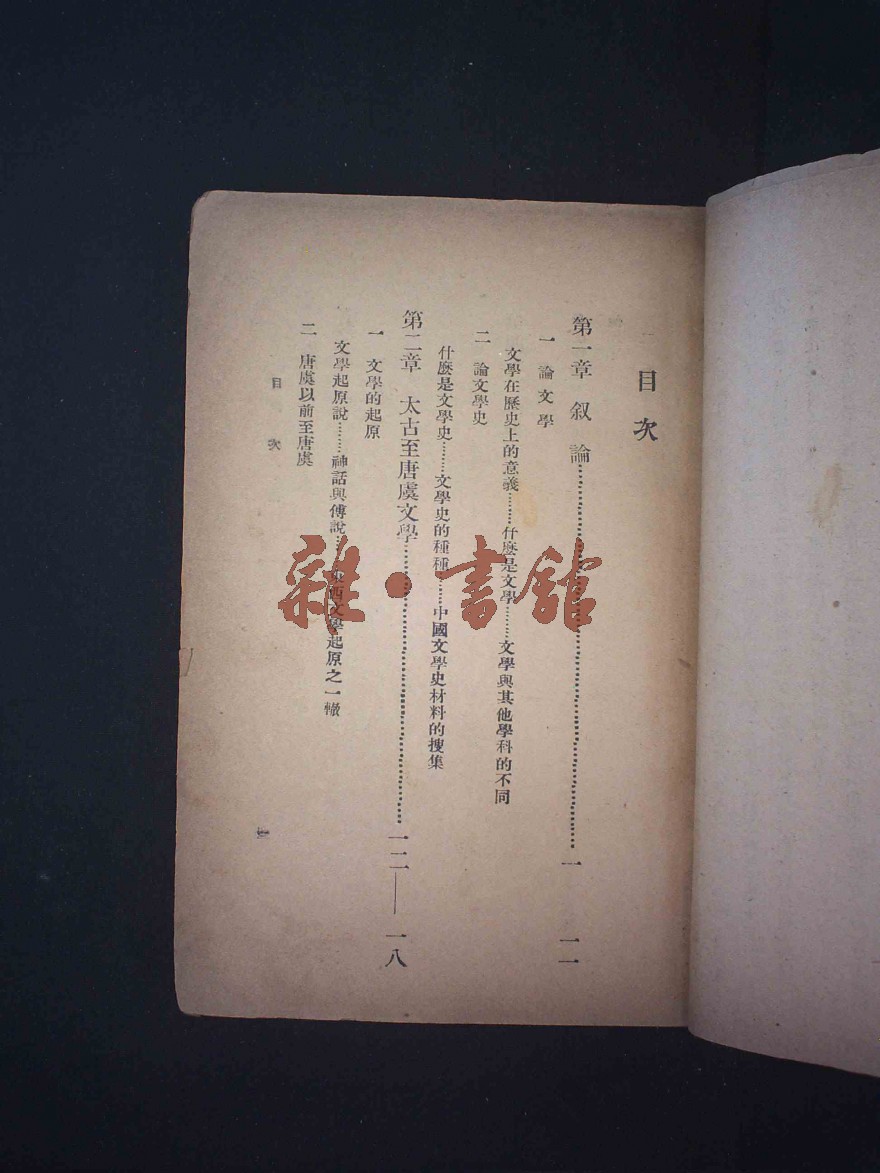 目次
第一章 叙論……一 一一
一 論文學
文學在歷史上的意義……什麼是文學……文學與其他學科的不同
二 論文學史
什麼是文學史……文學史的種種……中國文學史材料的搜集
第二章 太古至唐虞文學……一二——一八
一 文學的起原
文學起原說……神話與傳說……東西文學起原之一轍
二 唐虞以前至唐虞
目次
雜·書館